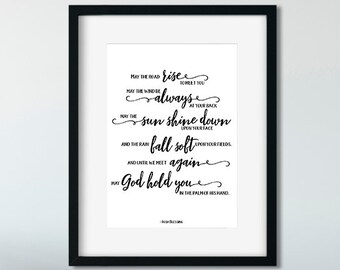 MAY THE ROAD rise TO MEET YOU
MAY THE WIND BE always AT YOUR BACK.
MAY THE sun shine down UPON YOUR FACE
AND THE RAIN fall soft UPON YOUR FIELDS.
AND UNTIL WE MEET again
MAY God hold you IN THE PALM OF HIS HAND.
- IRISH BLESSING